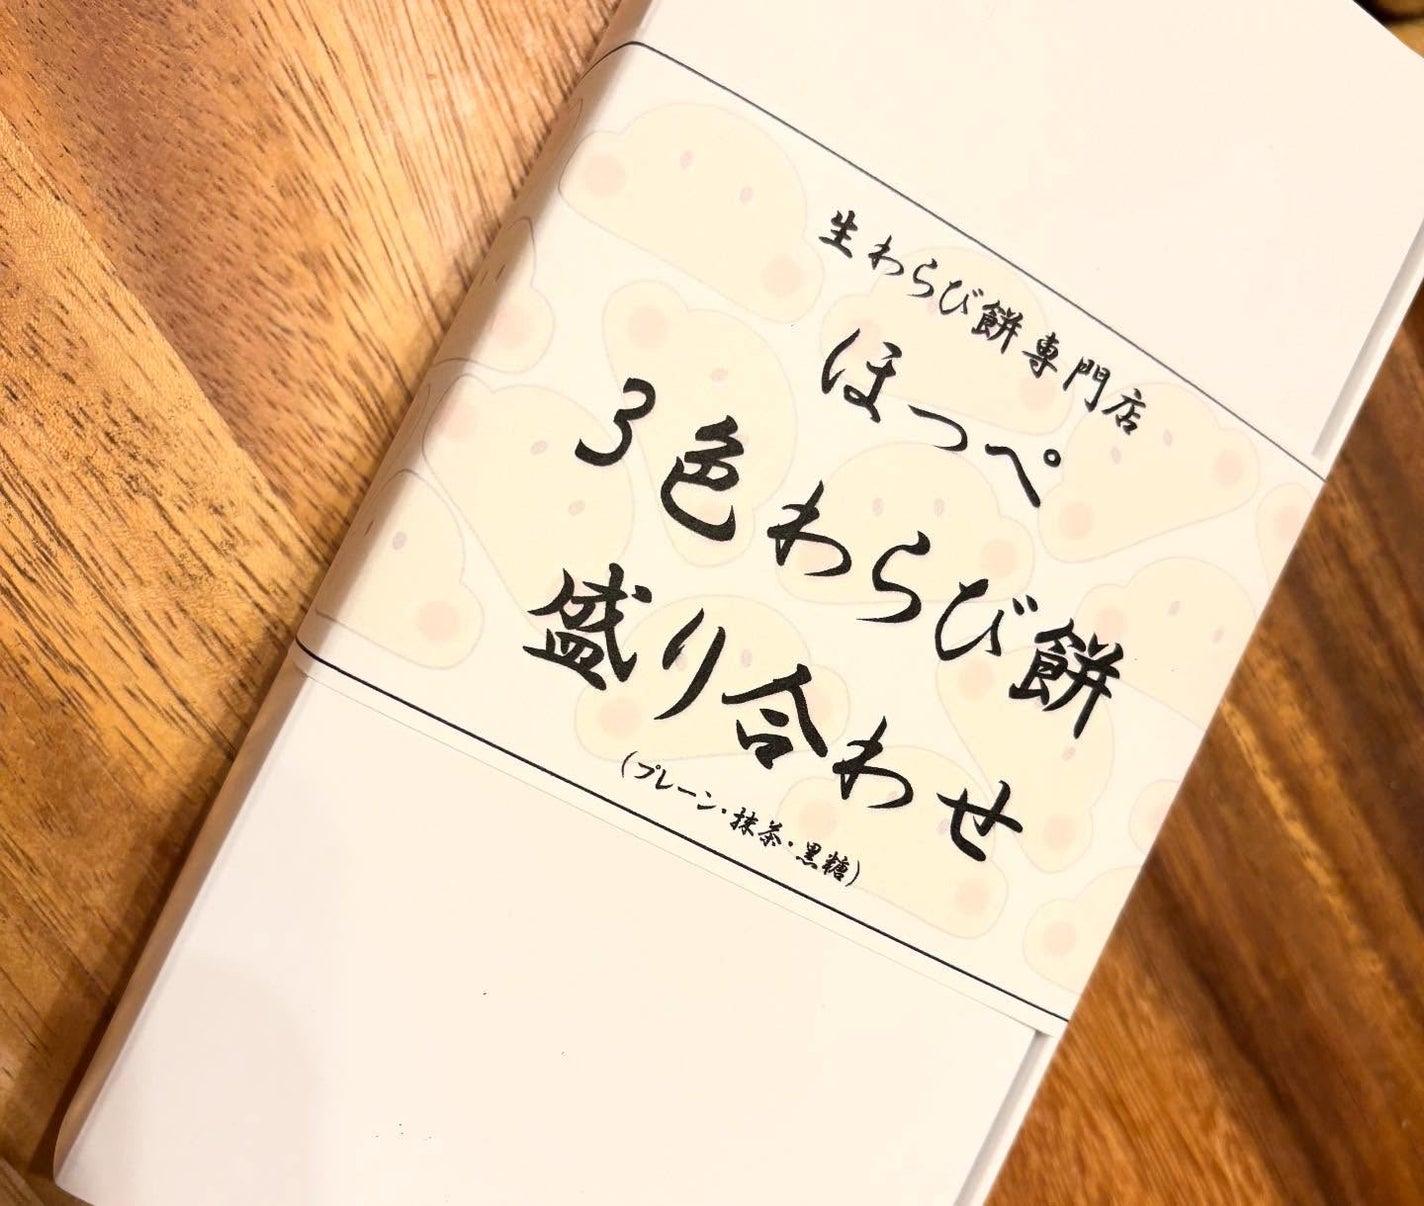 生わらび餅専門店
ほっぺ
3色わらび餅
盛り合わせ
(プレーン・抹茶・黒糖)